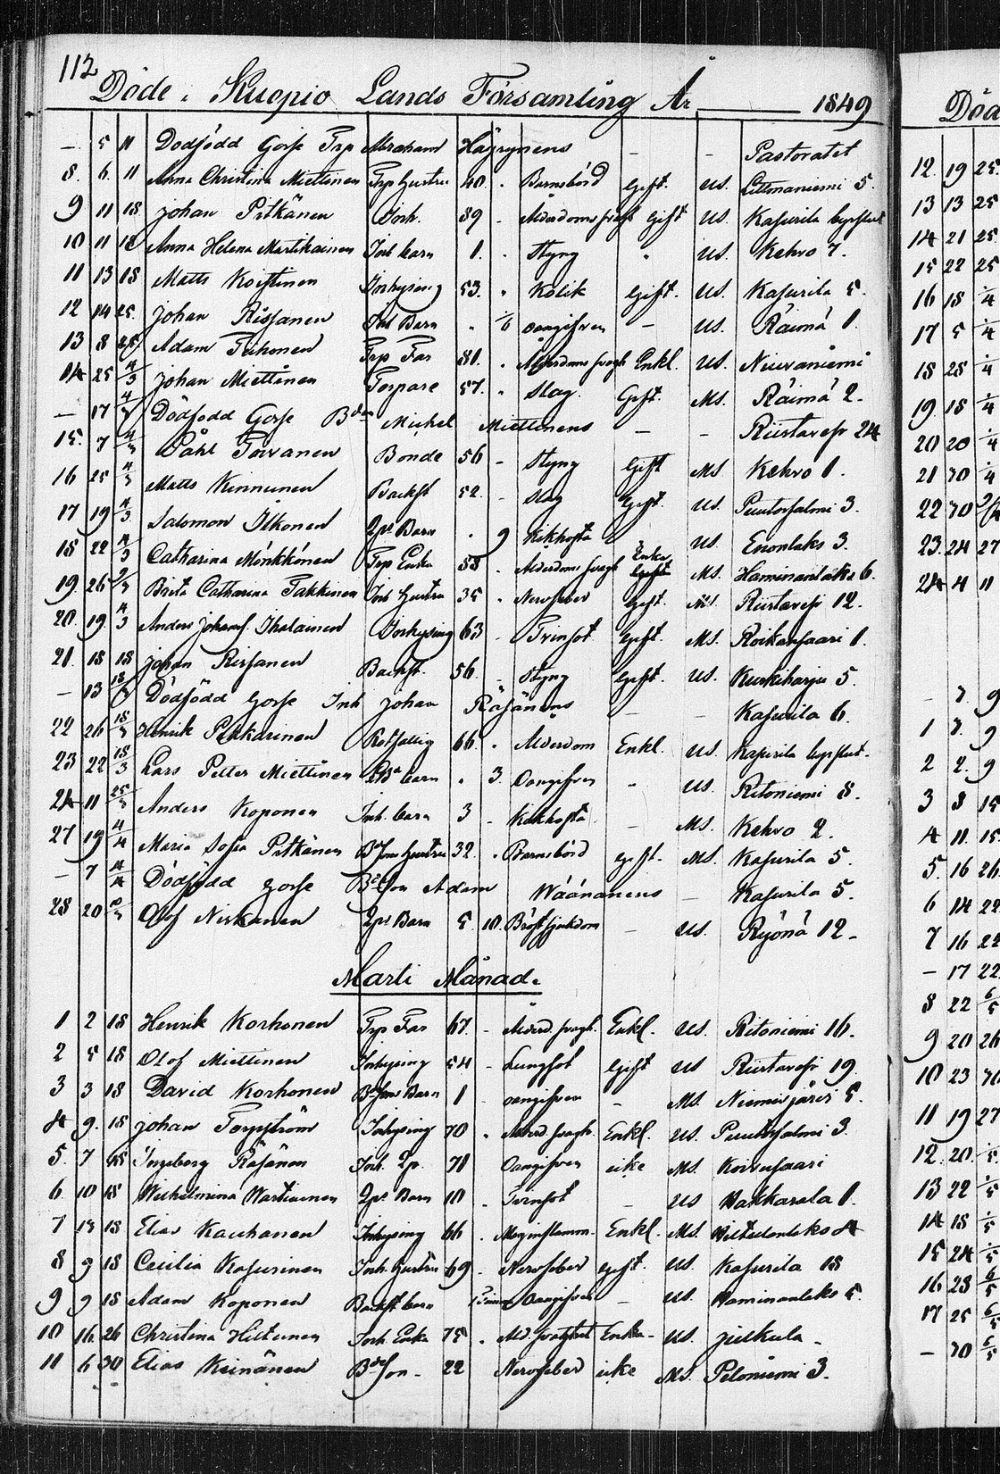 112
Döde i Kuopio Lands Församling År 1849
— 5 11 Dödfödd Gosse Trp Abraham Häyrynens — — Pastoratet
8. 6. 11 Anna Christina Miettinen Trp hustru 40. Barnsbörd Gift. us. Littmaniemi 5.
9 11 18 Johan Pitkänen Inh. 89 Gift us. Kasurila
10 11 18 Anna Helena Martikainen Inh barn 1. Styng us. Kehvo 7.
11 13 18 Matts Koistinen Inhysing 53. Kolik Gift. us. Kasurila 5.
12 14 25 Johan Rissanen Inh Barn 1/6 oangifven — us. Räimä 1.
13 8 25 Adam Tuhonen Trp Far 81. Ålderdoms svagh Enkl. us. Niuvaniemi
14 25 4/3 Johan Miettinen Torpare 57. Slag Gift. Ms. Räimä 2.
— 17 4/3 Dödfödd Gosse Bdn Michel Miettinens — — Riistavesi 24
15. 7 4/3 Påhl Toivanen Bonde 56 Styng Gift Ms Kehvo 1.
16 25 4/3 Matts Kinnunen Backst 52. Slag Gift. us. Puutosalmi 3.
17 19 4/3 Salomon Ikonen Barn 9 Kikhosta us. Enonlaks 3.
18 22 4/3 Catharina Mönkkönen Trp Enka 58 Ålderdoms svagh Enka Ms. Haminanlaks 6.
19. 26 Brita Catharina Takkinen Inh hustru 35 Nervfeber Gift. Ms. Riistavesi 12.
20. 19 4/3 Anders Johans. Ihalainen Inhysing 63 Tvinsot Gift. Ms. Roikansaari 1.
21. 18 18 Johan Rissanen Backst. 56. Styng Gift. us. Kurkiharju 5.
— 13 18/3 Dödfödd Gosse Inh Johan Räsänens — — Kasurila 6.
22 26 18/3 Henrik Pekkarinen Rotfattig 66. Ålderdom Enkl. us. Kasurila
23 22 18/3 Lars Petter Miettinen barn 3. Oangifven us. Ritoniemi 8.
24 11 25/3 Anders Koponen Inh. barn 3 Kikhosta — Ms. Kehvo 2.
27 19 4/4 Maria Sofia Pitkänen B Son hustru 32. Barnsbörd gift. Ms. Kasurila 5.
— 7 4/4 Dödfödd Gosse Bd Son Adam Väänänens — Kasurila 5.
28 20 Olof Niskanen Barn 5 10. Bröstsjukdom — us. Ryönä 12.
Marti Månad.
1 2 18 Henrik Korhonen Trp Far 67. Ålderd. svagh. Enkl. us. Ritoniemi 16.
2 5 18 Olof Miettinen Inhysing 54 Lungsot Gift us Riistavesi 19.
3 3 18 David Korhonen Bd Sons Barn 1 oangifven — Ms. Niemisjärvi 5.
4 9. 18 Johan Torpström Inhysing 70 Ålderd svagh. Enkl. us. Puutosalmi 3.
5. 7 Ingeborg Räsänen Inh. 71 Oangifven icke Ms. Koivusaari
6. 10 18 Wilhelmina Martiainen Barn 10 Tvinsot us Hakkarala 1.
7 18 Elias Kauhanen Inhysing 66 Enkl. Ms. Hiltulanlaks 4
8 9 18 Cecilia Kasurinen Inh. hustru 69. Nervfeber gift. us. Kasurila 18
9 9 18 Adam Koponen Backst barn Oangifven — us. Haminanlaks 5.
10 16. 26 Christina Hiltunen Inh Enka 75 Enka us. Julkula
11 6 30 Elias Keinänen Bd Son 22 Nervfeber icke Ms. Peloniemi 3.
Död
12. 19 25.
13 13 25
14 21 25.
15 22 25
16 18 1/4
17 5 1/4
18 25 1/4
19. 18 1/4
20 20 1/4
21 30 1/4
22 30
23. 24 27
24 4 11
— 7. 9
1 7. 9
2 2. 9
3 8 15
4 11. 15.
5. 16 26.
6 14 22
7 16 22
— 17 22.
8 22 6/5
9 20 26
10 23 30
11 19 27
12. 20 5.
13 22 1/5
14 18 1/5
15 24 1/5
16 28 6/5
17 25 6/5
— 30 6/5